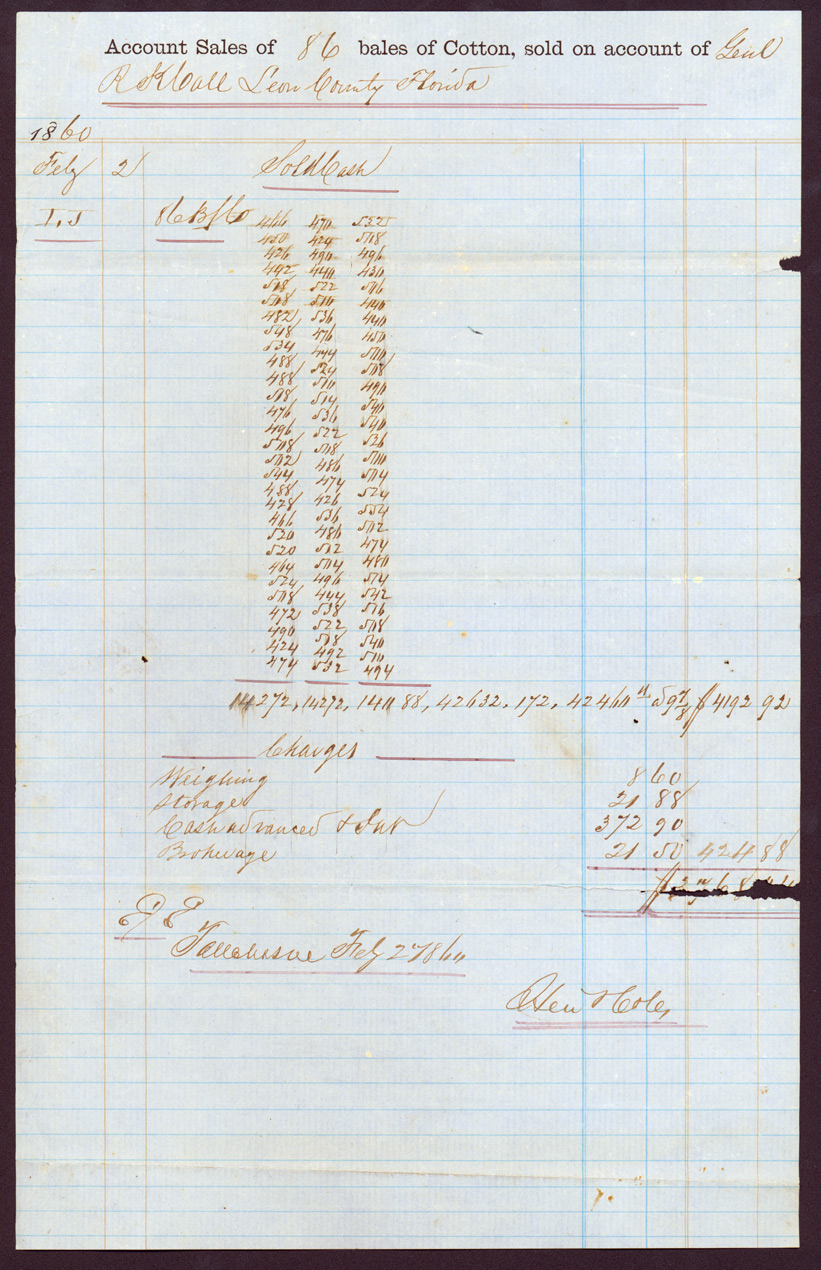 Account Sales of 86 bales of Cotton, sold on account of Genl
R K Call Leon County Florida
1860
Feby 2 Sold Cash
I,J 86 B/Co 466 470 532
450 424 508
426 490 496
442 440 430
508 522 506
508 510 440
482 536 440
548 476 450
534 444 500
488 524 508
488 510 490
508 514 540
476 536 540
496 522 526
508 508 500
502 486 504
544 474 524
488 426 534
428 536 502
466 486 474
520 502 480
520 504 574
464 496 542
524 444 516
508 538 508
472 522 540
490 508 510
424 492 494
474 532
14272, 14272, 14088, 42632, 172, 42460 @ 9 7/8 $4192 92
Charges
Weighing 8 60
Storage 21 88
Cash advanced & Int 372 90
Brokerage 21 50 424 88
$3768
E E
Tallahassee Feby 2 1860